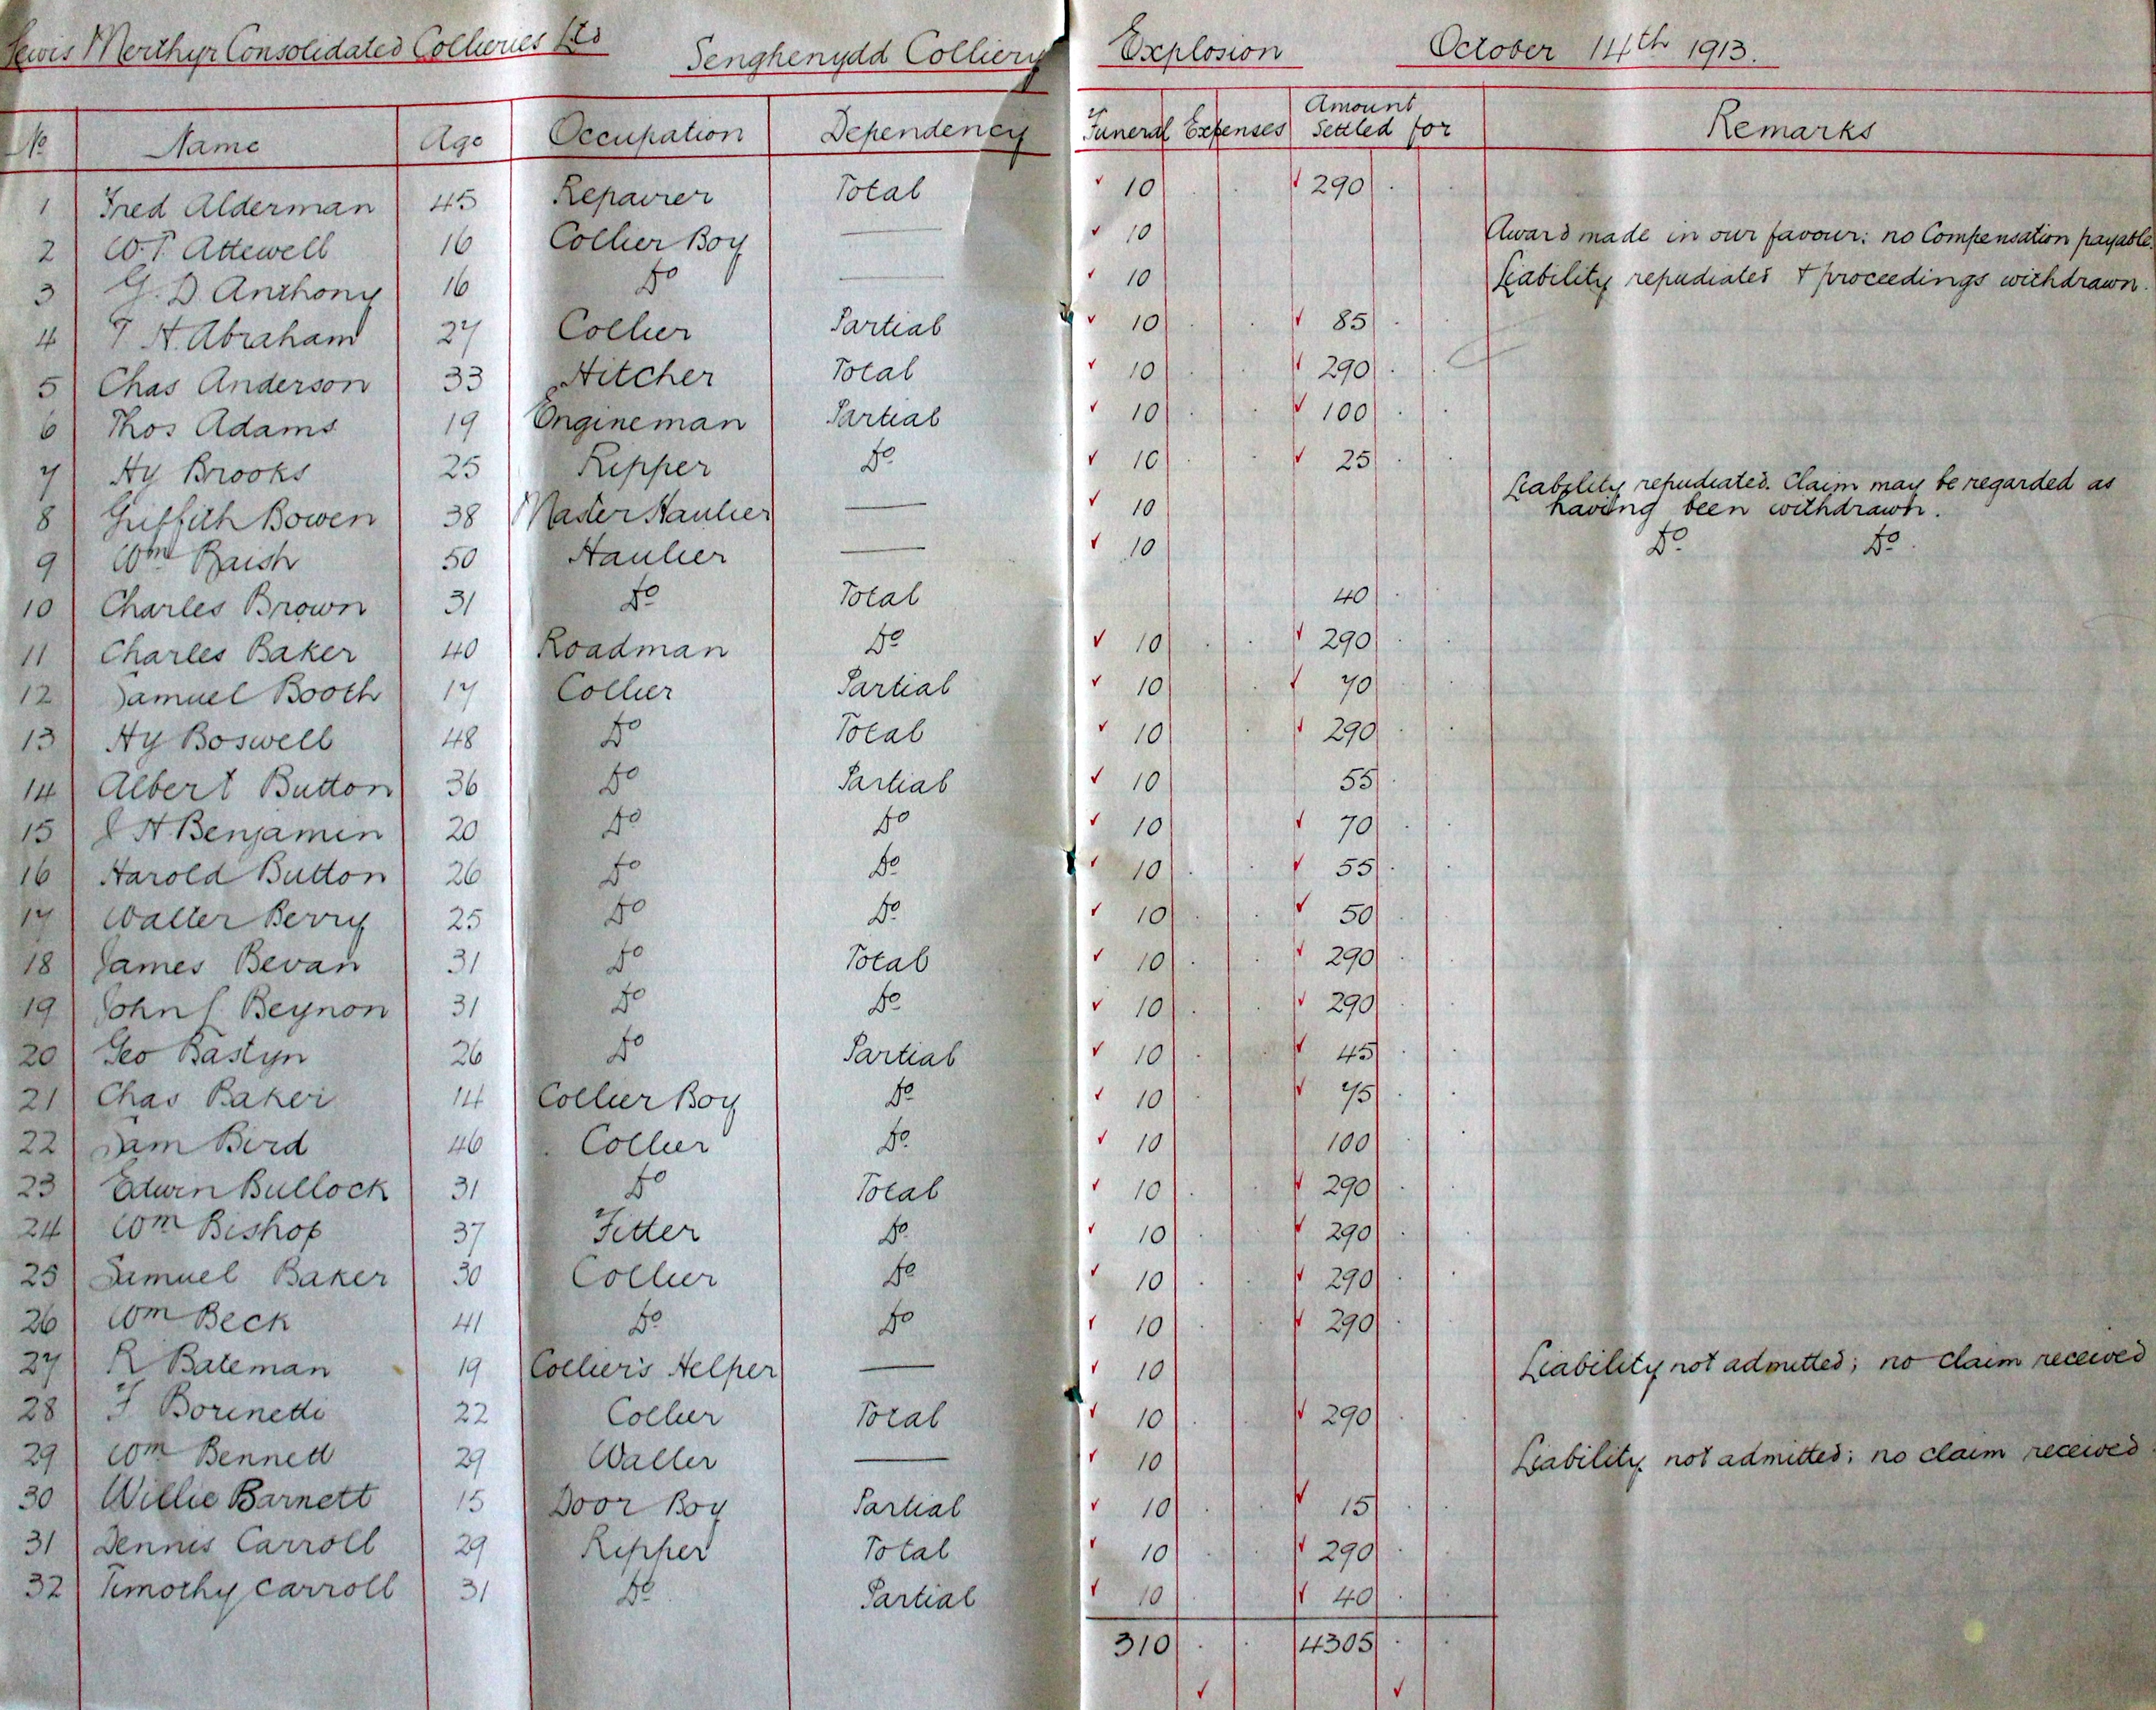 Lewis Merthyr Consolidated Collieries Ltd Senghenydd Colliery Explosion October 14th 1913.
No Name Age Occupation Dependency Funeral Expenses Amount Settled for Remarks
1 Fred Alderman 45 Repairer Total 10 290
2 W. T. Attewell 16 Collier Boy — 10 Award made in our favour: no Compensation payable.
3 G. D. Anthony 16 Do — 10 Liability repudiated & proceedings withdrawn.
4 T H. Abraham 27 Collier Partial 10 85
5 Chas Anderson 33 Hitcher Total 10 290
6 Thos Adams 19 Engineman Partial 10 100
7 Hy Brooks 25 Ripper Do 10 25
8 Griffith Bowen 38 Master Haulier — 10 Liability repudiated. Claim may be regarded as having been withdrawn.
9 Wm Baish 50 Haulier — 10 Do Do
10 Charles Brown 31 Do Total 40
11 Charles Baker 40 Roadman Do 10 290
12 Samuel Booth 17 Collier Partial 10 70
13 Hy Boswell 48 Do Total 10 290
14 Albert Button 36 Do Partial 10 55
15 J H Benjamin 20 Do Do 10 70
16 Harold Button 26 Do Do 10 55
17 Walter Berry 25 Do Do 10 50
18 James Bevan 31 Do Total 10 290
19 John J Beynon 31 Do Do 10 290
20 Geo Bastyn 26 Do Partial 10 45
21 Chas Baker 14 Collier Boy Do 10 75
22 Sam Bird 46 Collier Do 10 100
23 Edwin Bullock 31 Do Total 10 290
24 Wm Bishop 37 Fitter Do 10 290
25 Samuel Baker 30 Collier Do 10 290
26 Wm Beck 41 Do Do 10 290
27 R Bateman 19 Collier's Helper — 10 Liability not admitted; no claim received
28 F Borinetti 22 Collier Total 10 290
29 Wm Bennett 29 Waller — 10 Liability not admitted; no claim received
30 Willie Barnett 15 Door Boy Partial 10 15
31 Dennis Carroll 29 Ripper Total 10 290
32 Timothy Carroll 31 Do Partial 10 40
310 4305